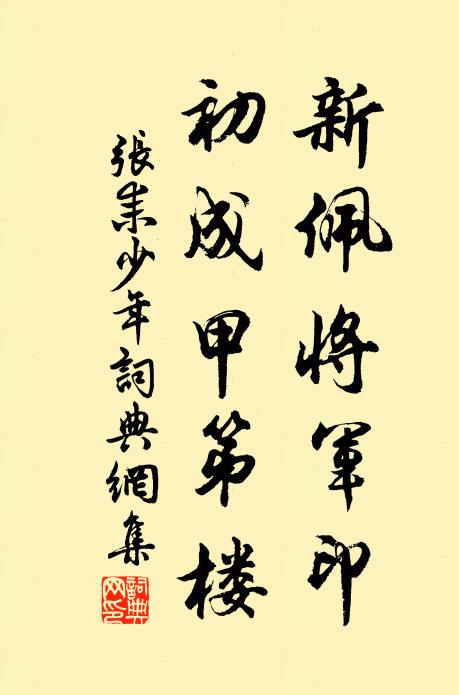 新佩将军印
初成甲第楼
張耒少年詞典網集
詞典网印